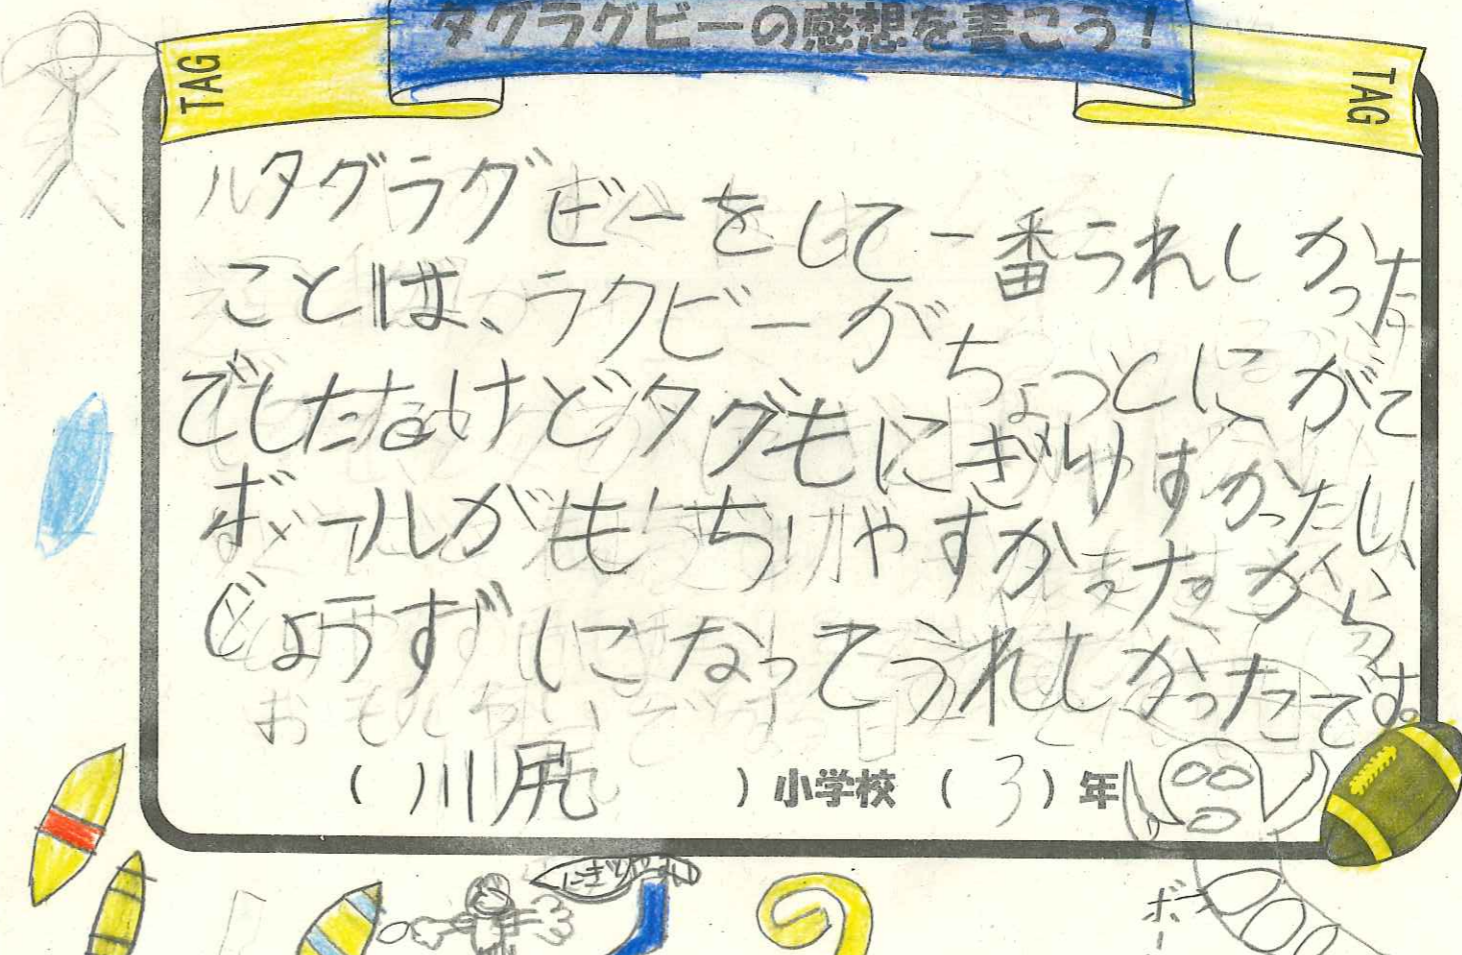 タグラグビーの感想を書こう！
TAG
TAG
タグラグビーをして一番うれしかった
ことは、ラクビーがちょっとにがて
でしたなけどタグもにぎりやすかったし、
ボールがもちりやすかったから
じょうずになってうれしかったです。
(川尻)小学校(3)年
にぎりや
ボー